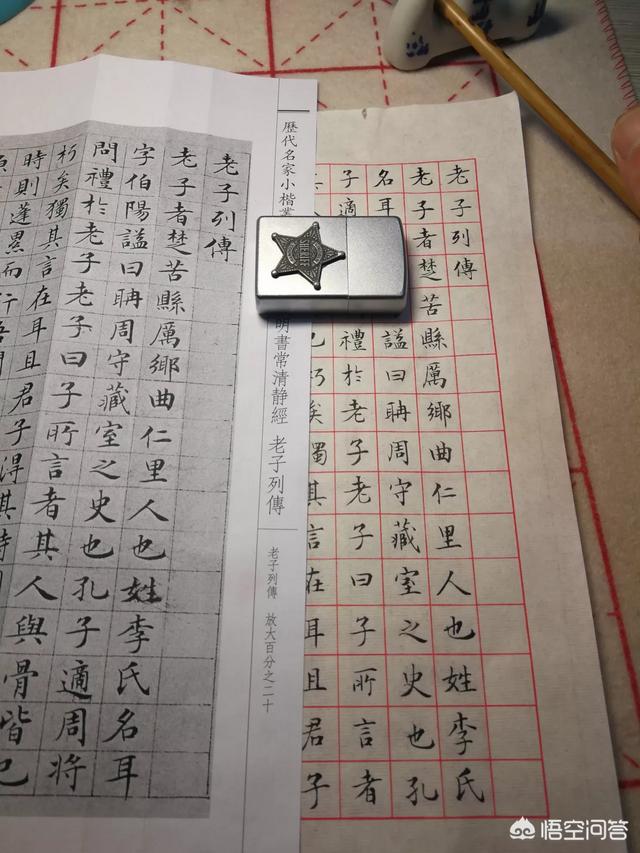 老子列傳
老子者楚苦縣厲鄉曲仁里人也姓李氏
名耳謚曰聃周守藏室之史也孔
子適禮於老子老子曰子所言者
其人已朽矣獨其言在耳且君子
歷代名家小楷
明書常清静經 老子列傳
老子列傳 放大百分之二十
老子列傳
老子者楚苦縣厲鄉曲仁里人也姓李氏名耳
字伯陽謚曰聃周守藏室之史也孔子適周將
問禮於老子老子曰子所言者其人與骨皆已
朽矣獨其言在耳且君子得其時
時則蓬累而行吾
SHERIFF
悟空问答